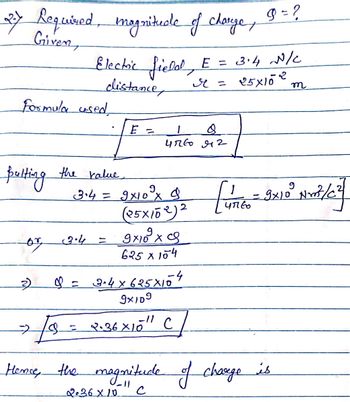 2) Required, magnitude of charge, Q = ?
Given,
Electric field, E = 3.4 N/C
distance, r = 25×10⁻² m
Formula used,
E = 1/4πϵ₀ Q/r²
putting the value,
3.4 = 9×10⁹ × Q / (25×10⁻²)² [1/4πϵ₀ = 9×10⁹ Nm²/C²]
or, 3.4 = 9×10⁹ × Q / 625 × 10⁻⁴
⇒ Q = 3.4 × 625×10⁻⁴ / 9×10⁹
⇒ Q = 2.36 × 10⁻¹¹ C
Hence, the magnitude of charge is
2.36 × 10⁻¹¹ C